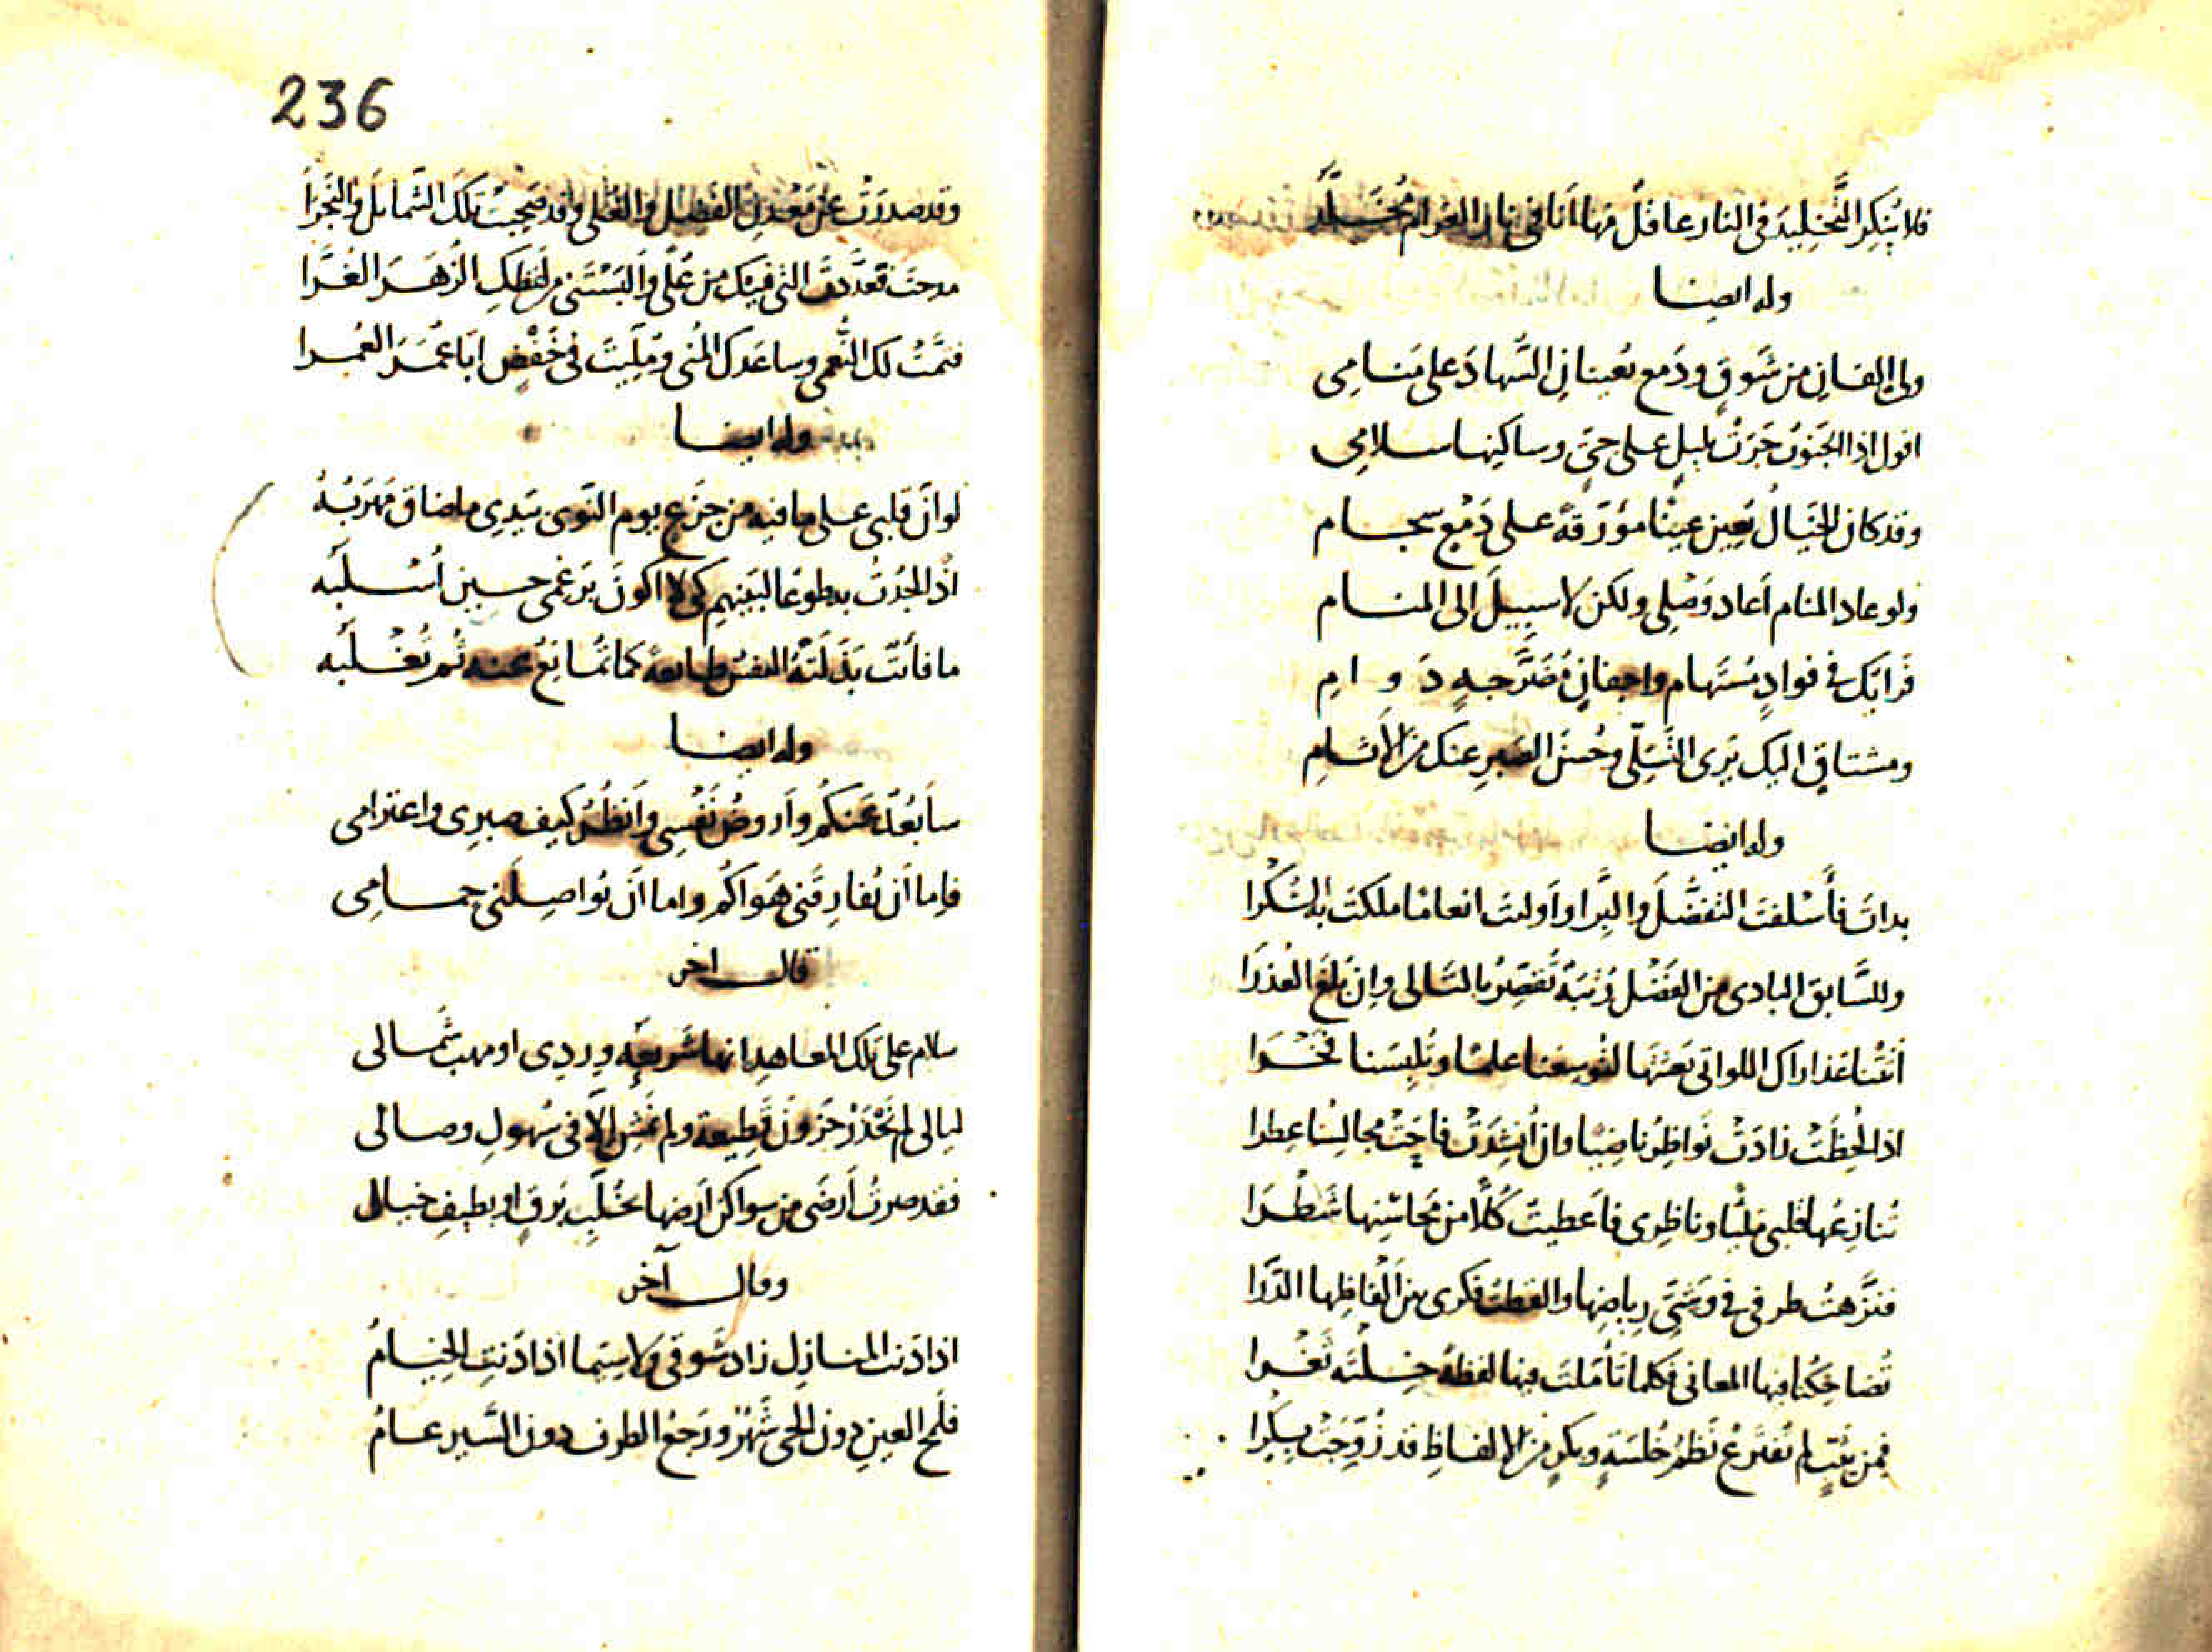 فلا يُنكِر التَّخليدَ في النار عاقلٌ فها انا في نار الغرام مُخَلَّد
وله ايضا
ولي الفان من شَوقٍ ودَمع يُعينان السُّهادَ على مَنامِى
اقول اذا الجَنوبُ جَرَتْ بليلٍ على حىٍّ وساكِنِها سلامِى
وقد كان الخَيالُ يُعين عينًا مؤرّقةً على دَمْعٍ سجام
ولو عاد المنام أعاد وَصْلِى ولكن لا سبيلَ الى المنام
فرابك في فوادٍ مُستَهام واجفانٍ مُضَرَّجهٍ دَوامِ
ومشتاقٍ اليك يَرى التَّسلّى وحُسنَ الصَبرِ عنك من الأثامِ
وله ايضا
بدات فأَسْلفت التفضُّلَ والبِرَّا وأوليت انعامًا ملكتَ به الشُكْرا
وللسَّابق البادى من الفَضْل رُتبَة تُقصِّر بالتالى وإن بَلغَ العُذرَا
أتتنا عَذاراك اللواتى بَعثتَها لتُوسِعَنا علمًا وتُلبِسَنا فَخْرَا
اذا لُحِظَتْ زادَتْ نواظِرُنا ضِيًا وان أُنشِدَتْ فاحَتْ مجالِسُنا عِطرا
تُنازِعُها قلبى مَليًّا وناظِرى فأعطيتُ كُلًّا من مَحاسِنِها شَطْرَا
فنَزَّهتُ طرفى في وَشْىِ رِياضِها والقطتُ فكرى من الْفاظِها الدُّرَّا
تُضاحِكُنا فيها المعانى فكلما تأمَّلتَ فيها لفظةً خِلْتَه ثَغْرا
فمن ثيّبٍ لم تُفتَرَعْ نَظمُ خُلسَةٍ وبكرٍ من الالفاظِ قد زُوِّجَتْ بِكرا
236
وقد صدرَتْ عن مَعْدِنِ الفضل والعُلى وقد صَحِبَتْ تلك الشَّمايل والنَّجْرَا
مدحتَ فعَدَّدتَ التى فيك من عُلًى وألبَسْتَنى من لفظِك الزُهَرَ الغُرَّا
فتمَّتْ لك النُّعمى وساعَدك المُنى ومُلِّيتَ في خَفْضٍ ابا عُمَرَ العُمرا
وله ايضا
لو انّ قلبى على ما فيه من جَزَعٍ يوم النَّوى بيَدِى ما ضاق مَهرَبُهُ
اذًا لجُدْتُ به طوعًا لبَينِهم كى لا اكونَ برَغمى حين أُسْلَبُه
ما فاتت بَذَلَتْهُ النفسُ طايعةً كما تُمانِعُ عنه ثُم تُغْلَبُه
وله ايضا
سأبعُدُ عَنكُم وأروضُ نَفْسِى وأنظُرُ كيف صبرِى واعتزامى
فإما أن تُفارِقَنى هَواكُم واما أن تُواصِلَنى حِمامِى
قال اخر
سلام على تلك المعاهِدِ انها شريعةُ وِردى او مهب شَمالى
ليالى لم نَحْذَرْ حُزونَ قَطيعة ولم نَمْشِ الَّا فى سُهولِ وصالى
فقد صرتُ أرضَى من سواكن أرضها بخُلَّبِ بَرقٍ او بطيفِ خيال
وقال آخر
اذا دَنت المنازِل زاد شَوقى ولا سيّما اذا دَنتِ الخِيامُ
فلَمحُ العينِ دون الحى شَهْرٌ ورَجعُ الطرف دون السَّير عامُ